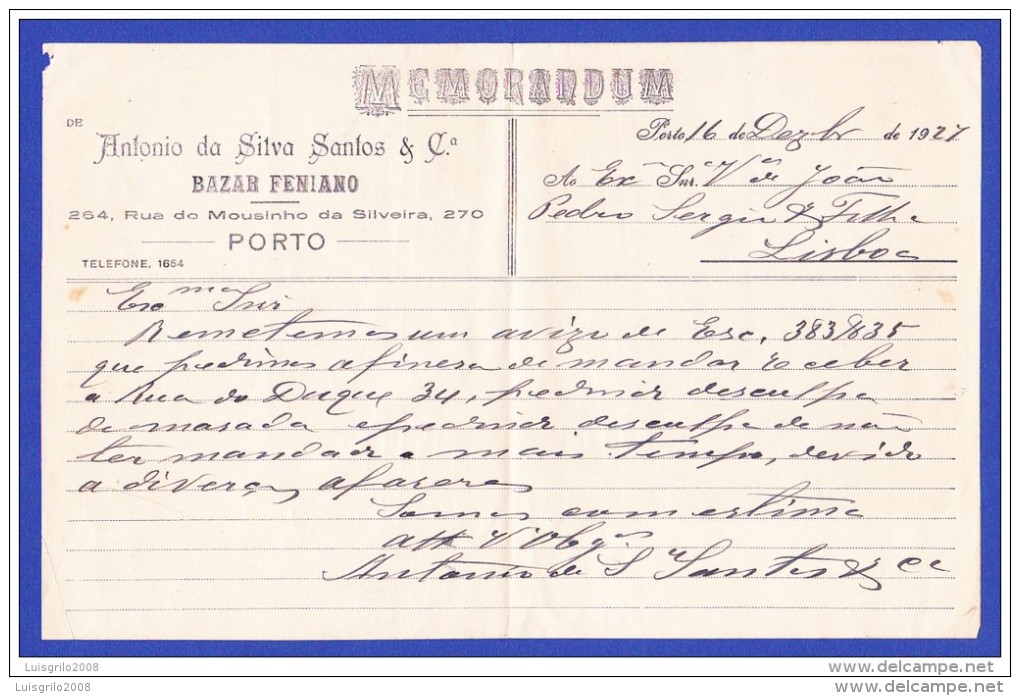 MEMORANDUM
DE
Antonio da Silva Santos & C.ª
BAZAR FENIANO
264, Rua do Mousinho da Silveira, 270
PORTO
TELEFONE, 1654
Porto 16 de Dezbr de 1927
Ao Ex Snr. Vª de João
Pedro Sergio & Filho
Lisboa
Exmo Snr
Remetemos um avizo de Esc. 383$835
que pedimos a finesa de mandar receber
a Rua do Duque 34, pedindo desculpa
da masada e pedindo desculpa de não
ter mandado a mais tempo, devido
a diverços afaseres
Somos com estima
att Vº Obgos
Antonio da S Santos & Ca
Luisgrilo2008
Luisgrilo2008
www.delcampe.net
www.delcampe.net